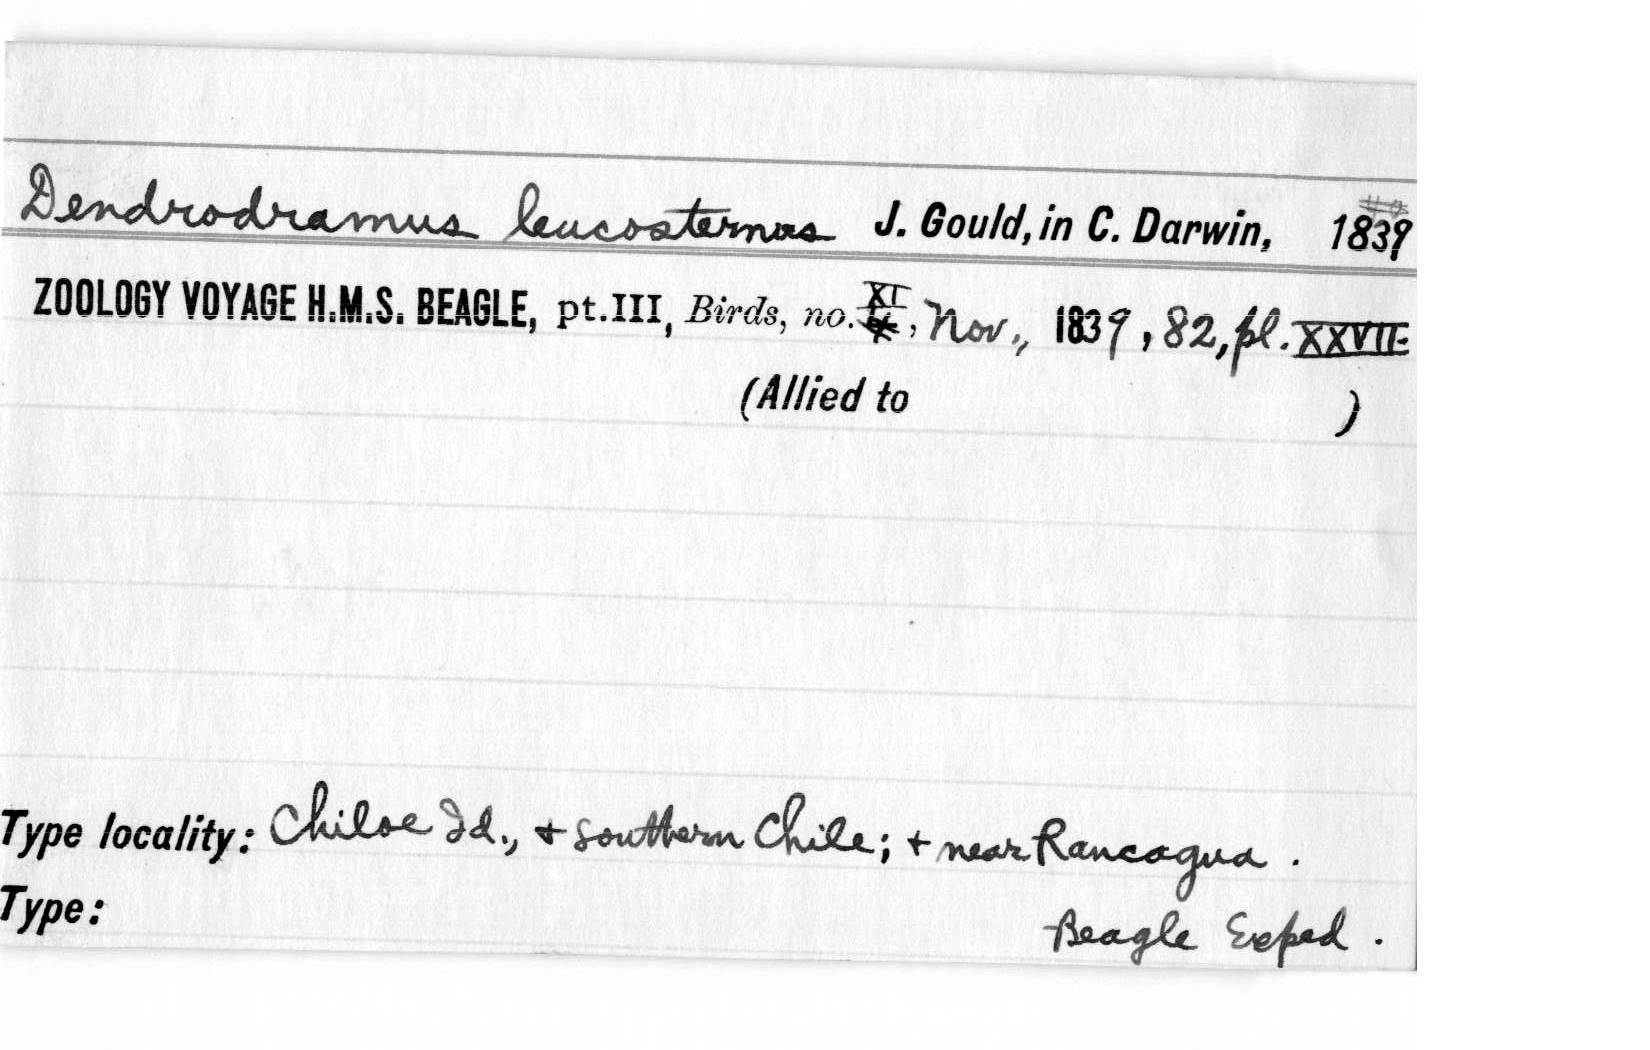 Dendrodramus leucosternus J. Gould, in C. Darwin, 1839
ZOOLOGY VOYAGE H.M.S. BEAGLE, pt.III, Birds, no. XI, Nov., 1839, 82, pl. XXVII
(Allied to )
Type locality: Chiloe Id., + southern Chile; + near Rancagua.
Type: Beagle Exped.